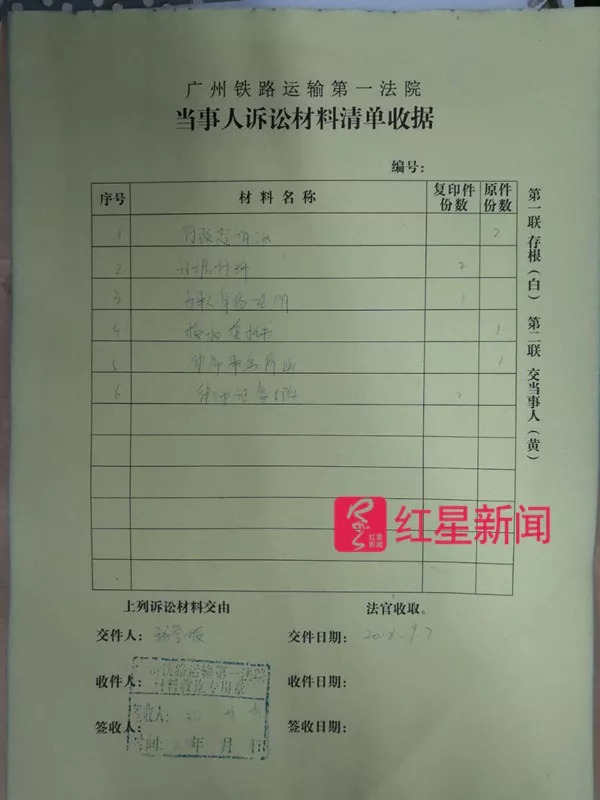 广州铁路运输第一法院
当事人诉讼材料清单收据
编号：
序号 材料名称 复印件份数 原件份数
1 行政起诉状 2
2 证据材料 2
3 身份证明 1
4 授权委托书 1
5 律师事务所函 1
6 律师证复印件 2
第一联 存根（白） 第二联 交当事人（黄）
红星新闻
红星新闻
上列诉讼材料交由 法官收取。
交件人： 交件日期： 9.7
收件人： 收件日期：
签收人： 签收日期：
铁路运输第一法院
材料收讫专用章
签收人：
时间： 年 月 日